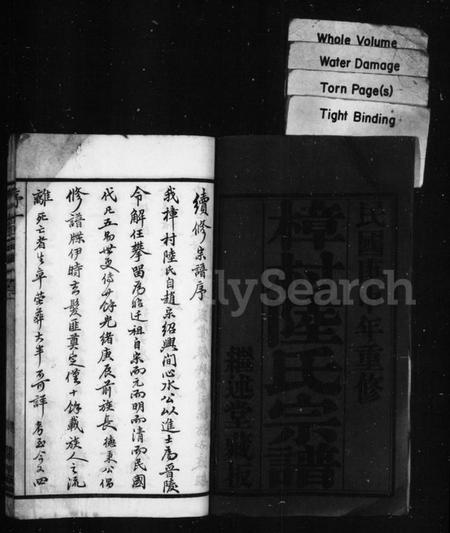 Whole Volume
Water Damage
Torn Page(s)
Tight Binding
民國 年重修
樟村陸氏宗譜
繼述堂 板
FamilySearch
續修宗譜序
我樟村陸氏自趙宋紹興間心水公以進士為晉陵
令解任攀留為始迁祖自宋而元而明而清而民國
代凡五易世更修 餘光緒庚辰前族長德東公倡
修譜牒伊時玄髮匪莫定僅十餘載族人之流
離死亡者生卒營葬大半可詳考至今又四
序